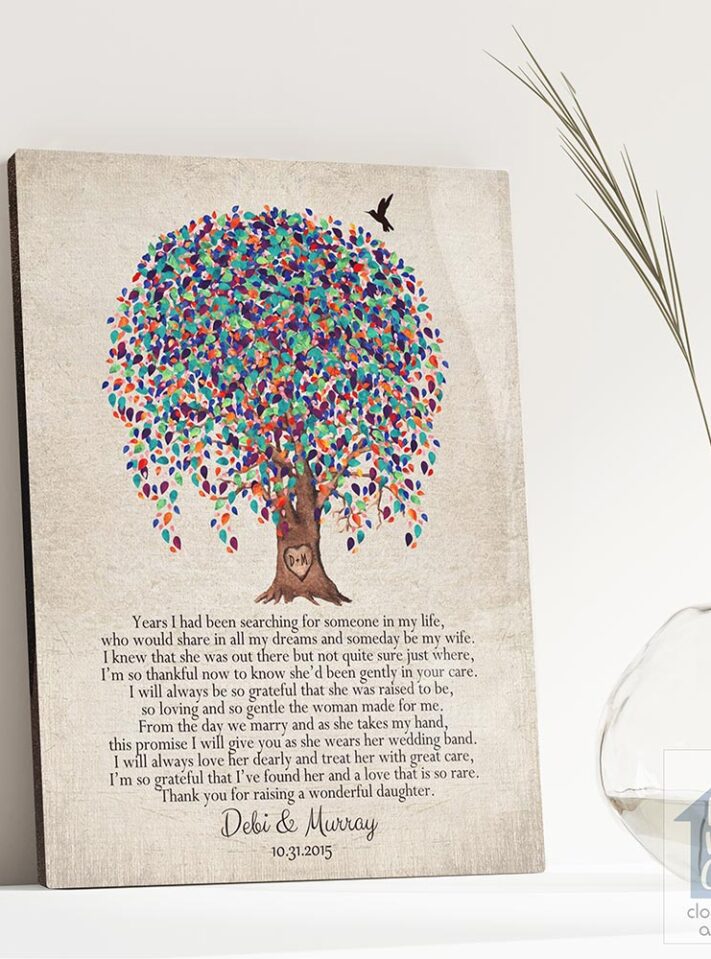 D+M
Years I had been searching for someone in my life,
who would share in all my dreams and someday be my wife.
I knew that she was out there but not quite sure just where,
I'm so thankful now to know she'd been gently in your care.
I will always be so grateful that she was raised to be,
so loving and so gentle the woman made for me.
From the day we marry and as she takes my hand,
this promise I will give you as she wears her wedding band.
I will always love her dearly and treat her with great care,
I'm so grateful that I've found her and a love that is so rare.
Thank you for raising a wonderful daughter.
Debi & Murray
10.31.2015
clo
a